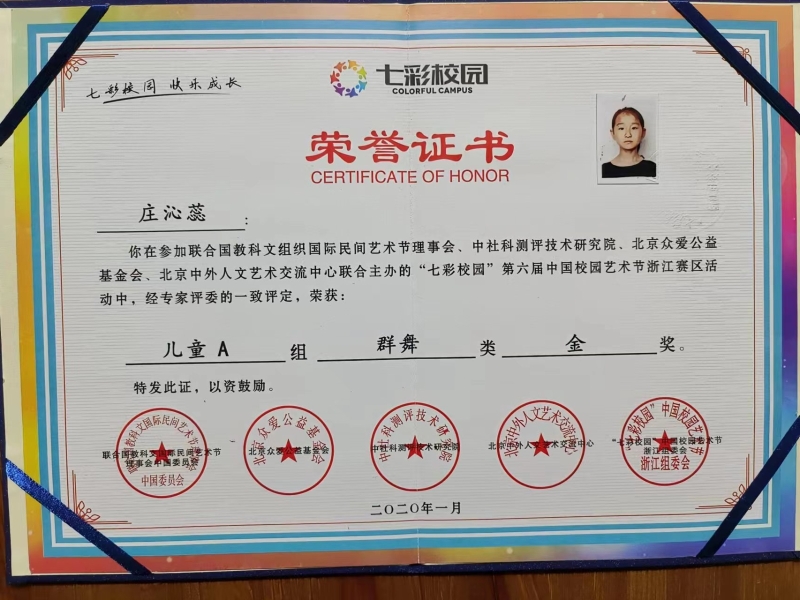 七彩校园 快乐成长
七彩校园
COLORFUL CAMPUS
荣誉证书
CERTIFICATE OF HONOR
庄沁蕊:
你在参加联合国教科文组织国际民间艺术节理事会、中社科测评技术研究院、北京众爱公益
基金会、北京中外人文艺术交流中心联合主办的“七彩校园”第六届中国校园艺术节浙江赛区活
动中,经专家评委的一致评定,荣获:
儿童A 组 群舞 类 金 奖。
特发此证,以资鼓励。
联合国教科文国际民间艺术节
理事会中国委员会
中国委员会
北京众爱公益基金会
北京众爱公益基金会
中社科测评技术研究院
中社科测评技术研究院
北京中外人文艺术交流中心
北京中外人文艺术交流中心
“七彩校园”中国校园艺术节
浙江组委会
“七彩校园”中国校园艺术节
浙江组委会
二〇二〇年一月